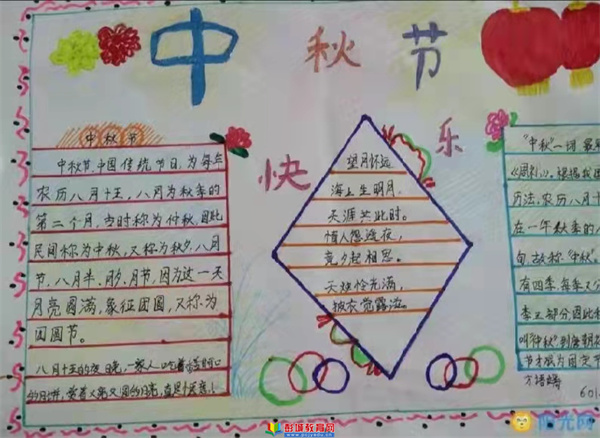 中秋节
快乐
中秋节
中秋节、中国传统节日，为每年
农历八月十五，八月为秋季的
第二个月，古时称为仲秋，因此
民间称为中秋，又称为秋夕、八月
节、八月半、月夕、月节，因为这一天
月亮圆满，象征团圆，又称为
团圆节。
八月十五的夜晚，一家人吃着
的月饼，赏着又亮又圆的月亮，真是
望月怀远
海上生明月，
天涯共此时。
情人怨遥夜，
竟夕起相思。
灭烛怜光满，
披衣觉露滋。
"中秋"一词，最早
《周礼》。根据我国
历法，农历八月十
在一年秋季的八
旬，故称"中秋"。
有四季，每季又分
季三部分，因此秋
叫仲秋，到唐朝初
节才成为固定节
601
彭城教育网
阳光网